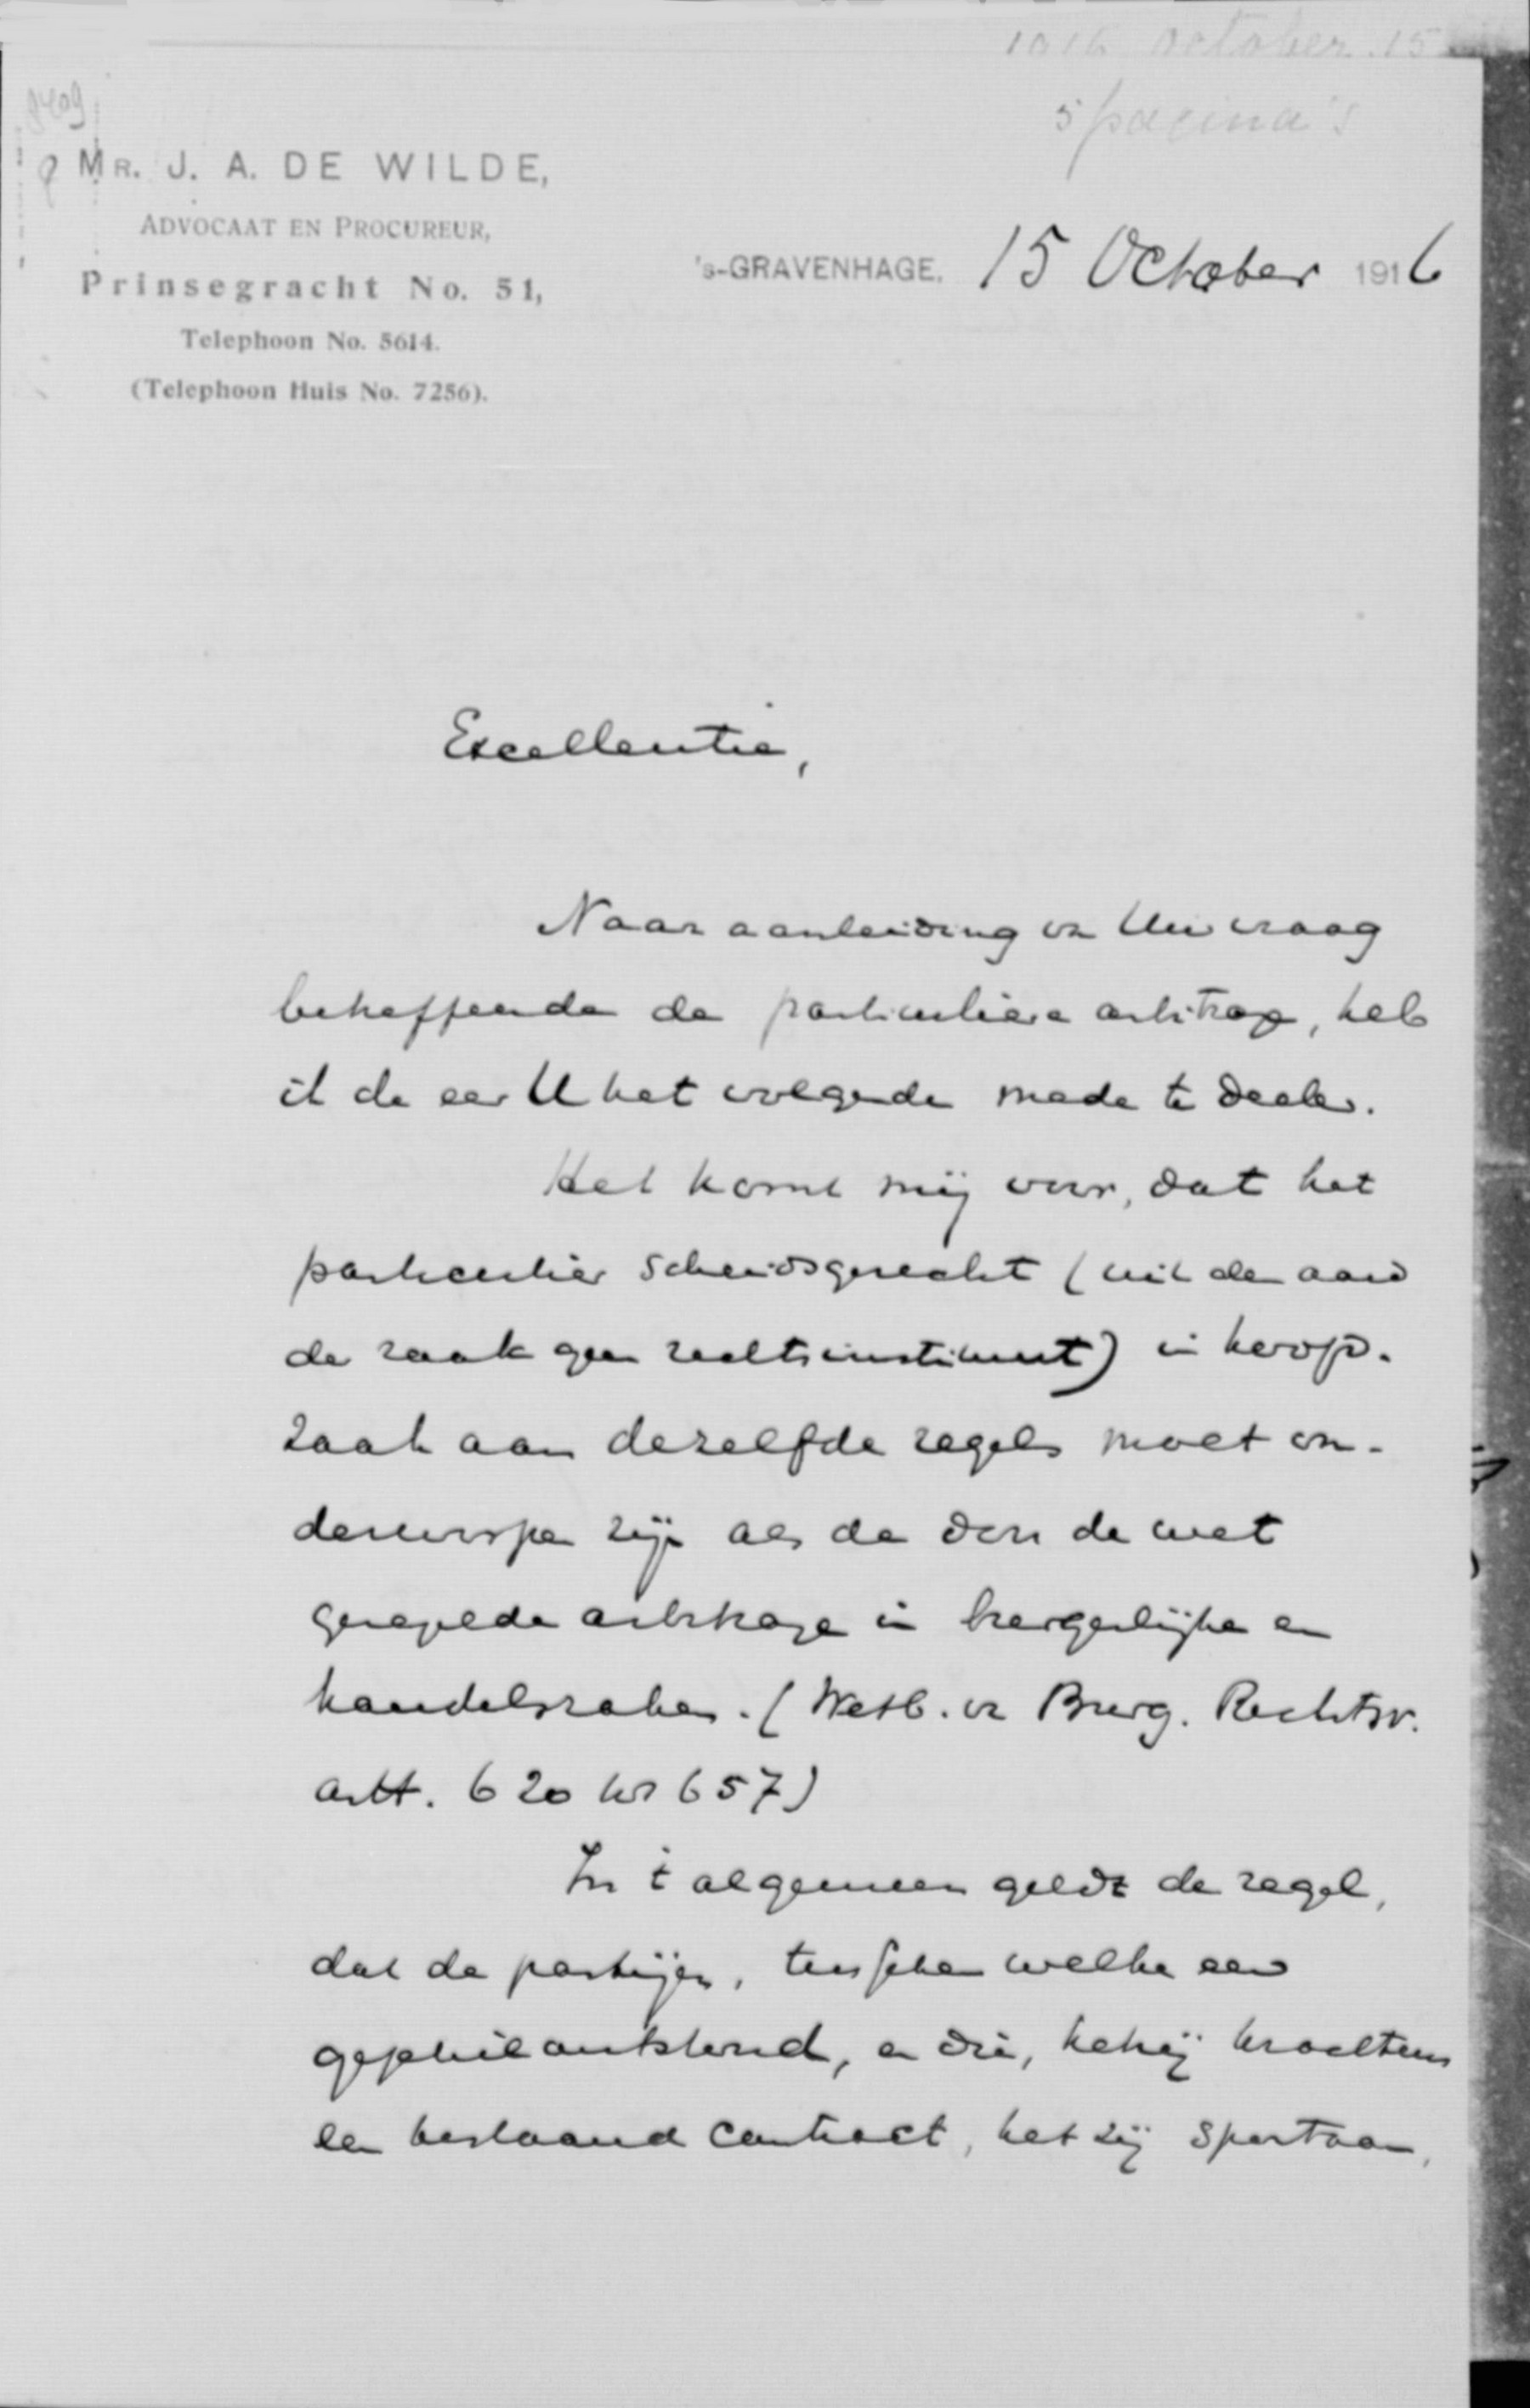 1916 October 15
5 pagina's
8409
MR. J. A. DE WILDE,
ADVOCAAT EN PROCUREUR,
Prinsegracht No. 51,
Telephoon No. 5614.
(Telephoon Huis No. 7256).
's-GRAVENHAGE, 15 October 1916
Excellentie,
Naar aanleiding van Uw vraag
betreffende de particuliere arbitrage, heb
ik de eer U het volgende mede te deelen.
Het komt mij voor, dat het
particulier scheidsgerecht (uit den aard
der zaak geen rechtsinstituut) in hoofd-
zaak aan dezelfde regels moet on-
derworpen zijn als de door de wet
geregelde arbitrage in burgerlijke en
handelszaken. (Wetb. van Burg. Rechtsv.
artt. 620 tot 657)
In 't algemeen geldt de regel,
dat de partijen, tusschen welke een
geschil ontstond, en die, hetzij krachtens
een bestaand contract, het zij spontaan,